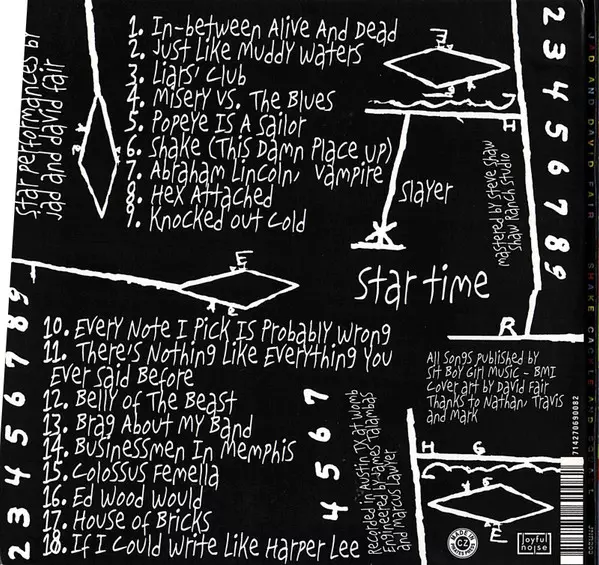 star performances by
jad and david fair
1. In-between Alive And Dead
2. Just Like Muddy Waters
3. Liars' Club
4. Misery vs. The Blues
5. Popeye Is A Sailor
6. Shake (This Damn Place up)
7. Abraham Lincoln, Vampire
8. Hex Attached
9. Knocked out Cold
E
H
slayer
mastered by steve shaw
shaw Ranch studio
2 3 4 5 6 7 8 9
E
star time
R
10. Every Note I Pick Is Probably Wrong
11. There's Nothing Like Everything You
Ever Said Before
12. Belly of The Beast
13. Brag About My Band
14. Businessmen In Memphis
15. Colossus Femella
16. Ed Wood Would
17. House of Bricks
18. If I Could Write Like Harper Lee
2 3 4 5 6 7 8 9
4 5 6 7
Recorded in Austin, TX at Womb
Engineered by James Talambas
and Marcus Lawyer
All Songs published by
Sit Boy Girl Music - BMI
Cover art by David Fair
Thanks to Nathan, Travis
and Mark
H G
E
MADE IN
CZ
joyful
noise
714270690082
JAD AND DAVID FAIR